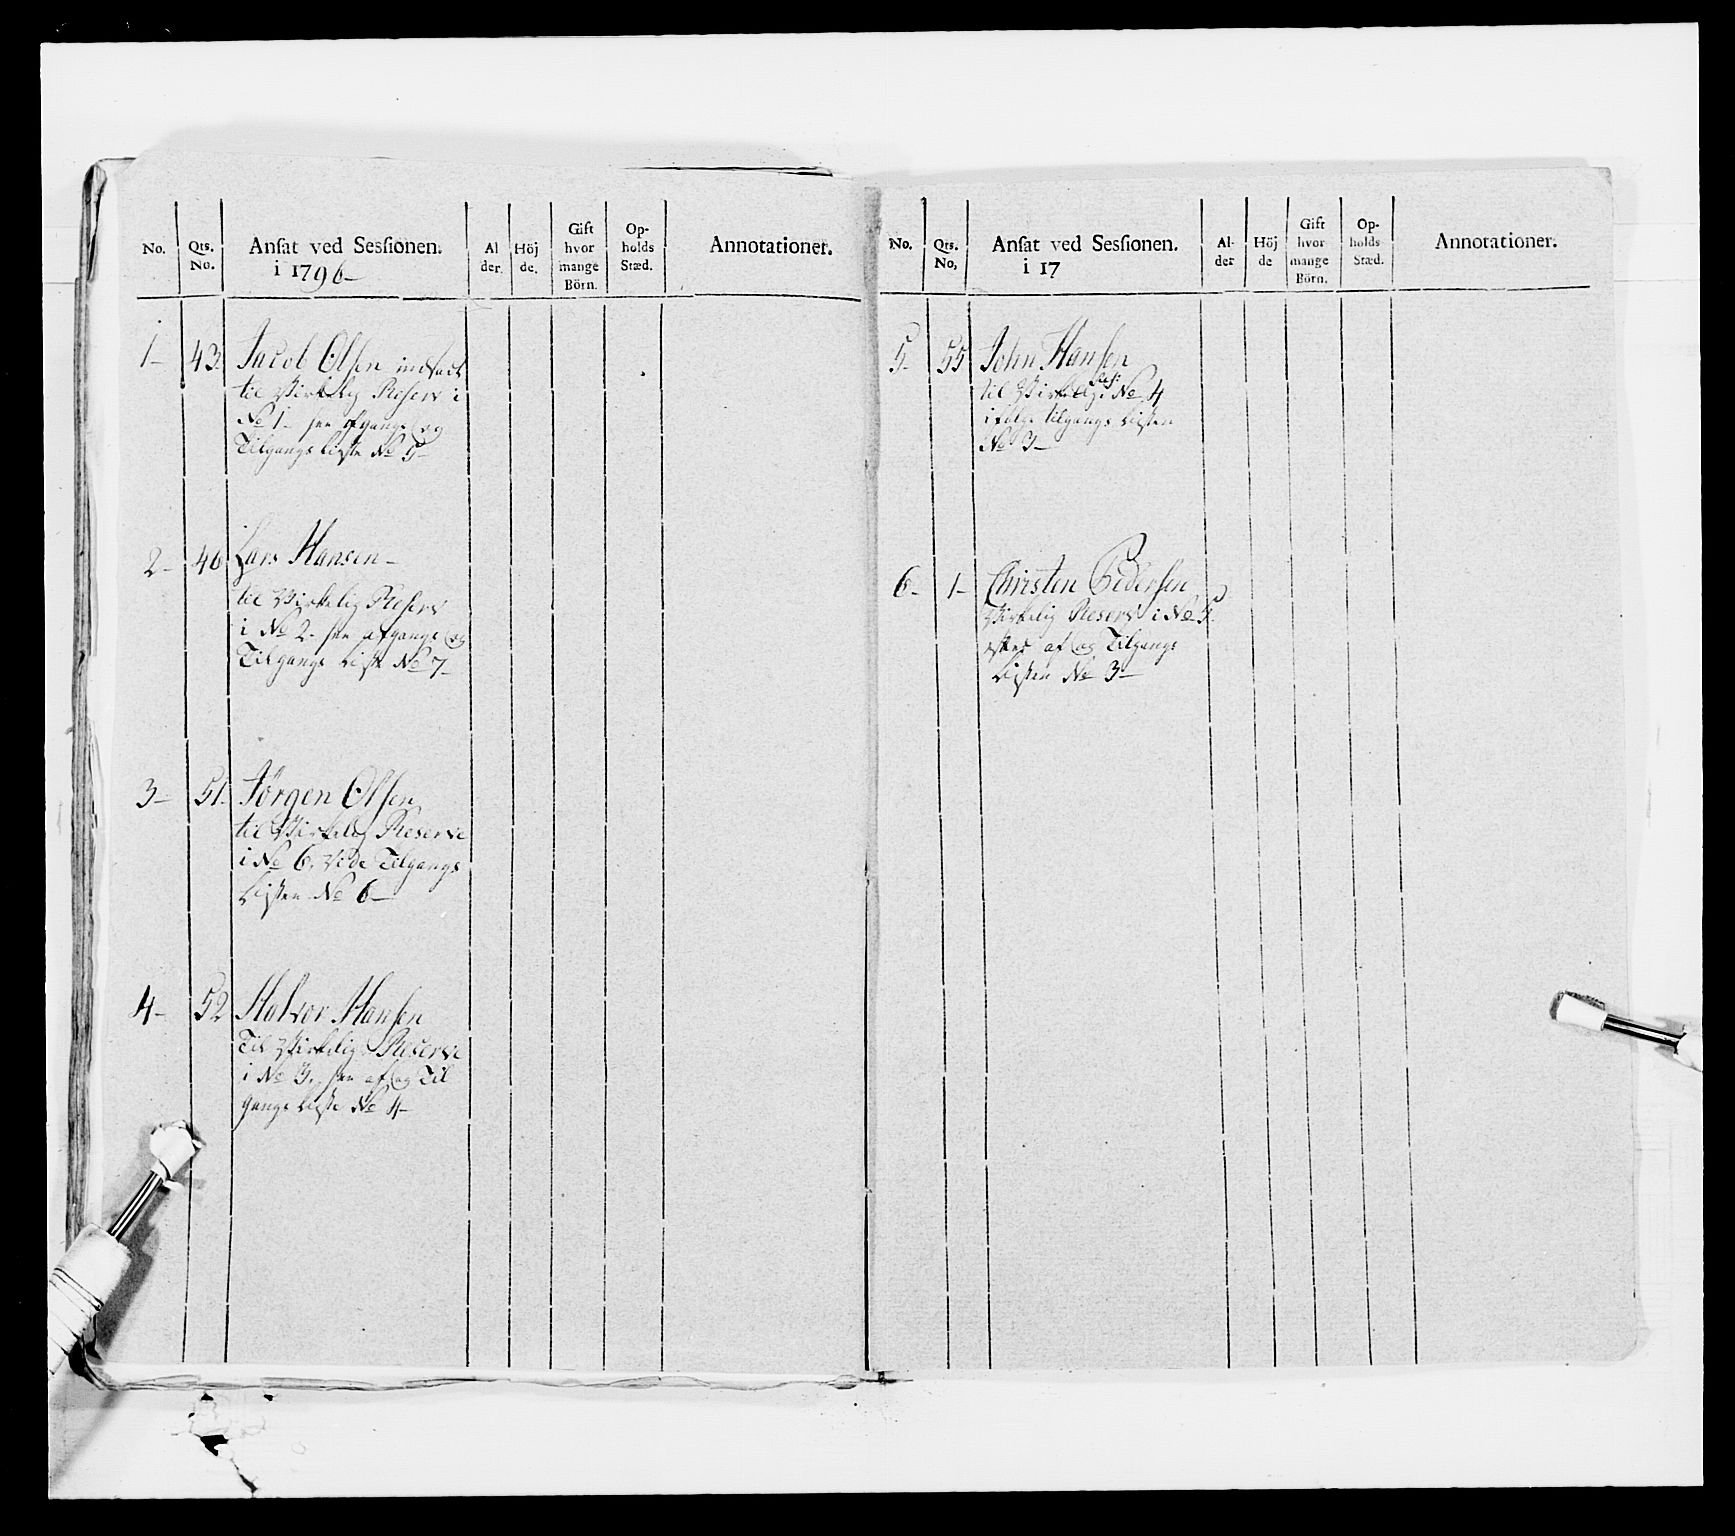 No. Qts. No. Ansat ved Sessionen. i 1796 Al der. Höj de. Gift hvor mange Börn. Op- holds Stæd. Annotationer.
1- 43. Jacob Olsen indsadt
til Virkelig Reserv i
No 1- see afgangs og
Tilgangs Liste No 5-
2- 46 Lars Hansen-
til Virkelig Reserv
i No 2- see afgangs og
Tilgangs Liste No 7-
3- 51- Jörgen Olsen
til Virkelig Reserve
i No 6. vide Tilgangs
Listen No 6-
4- 52 Halvor Hansen
Til Virkelig Reserve
i No 3. see af og Til
gangs Liste No 4-
No. Qts. No, Ansat ved Sessionen. i 17 Al- der Höj de Gift hvor mange Börn. Op- holds Stæd. Annotationer.
5- 55 John Hansen
til Virkelig Res: No 4
ifölge tilgangs Listen
No 3-
6- 1- Christen Pedersen
Virkelig Reserv i No 5.
efter af og Tilgangs
Listen No 3-